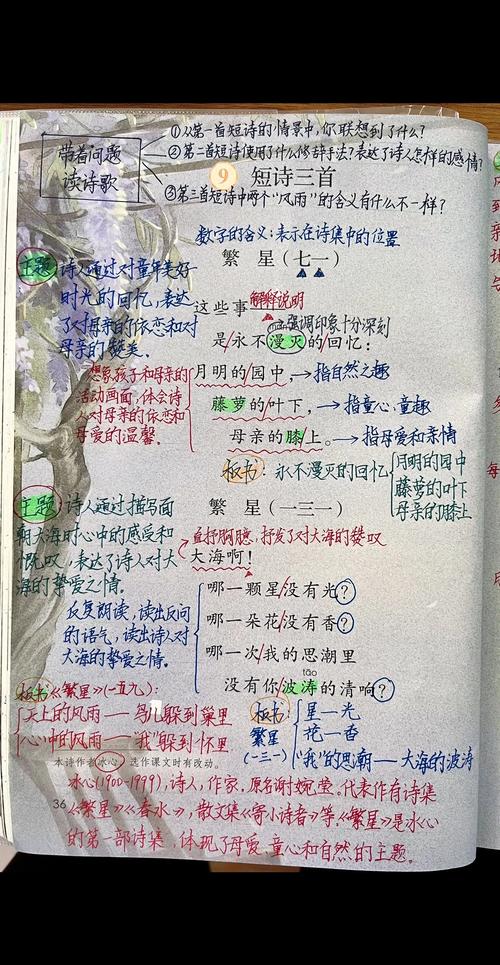 带着问题
读诗歌
①从第一首短诗的情景中，你联想到了什么?
②第二首短诗使用了什么修辞手法?表达了诗人怎样的感情?
③第三首短诗中两个"风雨"的含义有什么不一样?
9 短诗三首
数字的含义:表示在诗集中的位置
繁星(七一)
主题 诗人通过对童年美好
时光的回忆,表达
了对母亲的依恋和对
母亲的赞美。
这些事——解释说明
强调印象十分深刻
是/永不漫灭的/回忆:
月明的/园中,→指自然之趣
藤萝的/叶下,→指童心、童趣
母亲的/膝上。→指母爱和亲情
想象孩子和母亲的
活动画面,体会诗
人对母亲的依恋和
母爱的温馨。
板书:永不漫灭的回忆
月明的园中
藤萝的叶下
母亲的膝上
繁星(一三一)
主题:诗人通过描写面
朝大海时心中的感受和
慨叹,表达了诗人对大
海的挚爱之情。
直抒胸臆,抒发了对大海的赞叹
大海啊!
哪一颗星/没有光?
哪一朵花/没有香?
哪一次/我的思潮里
tāo
没有你/波涛的清响?
反复朗读,读出反问
的语气,读出诗人对
大海的挚爱之情。
板书《繁星》(一五九):
天上的风雨——鸟儿躲到巢里
心中的风雨——"我"躲到怀里
板书:
繁星
(一三一)
星—光
花—香
"我"的思潮—大海的波涛
本诗作者冰心,选作课文时有改动。
36
冰心(1900-1999),诗人,作家,原名谢婉莹。代表作有诗集
《繁星》《春水》,散文集《寄小读者》等。《繁星》是冰心
的第一部诗集,体现了母爱、童心和自然的主题。